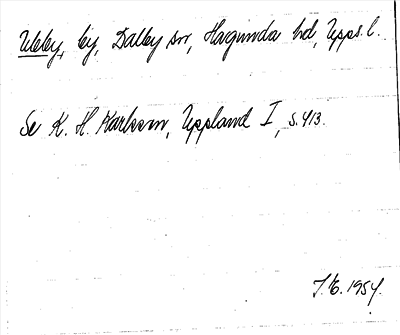 Ubby, by, Dalby sn, Hagunda hd, Upps. l.
Se K. H. Karlsson, Uppland I, s. 413.
1954.